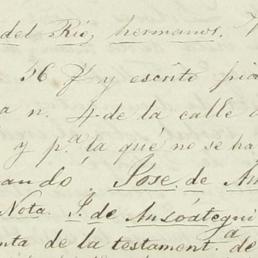 del Rio, hermanos.
56 J y escrito pia
a n. 4 de la calle
y p.a la qué no se ha
ando. Jose de An
Nota. J. de Anzoategui
nta de la testament.a de